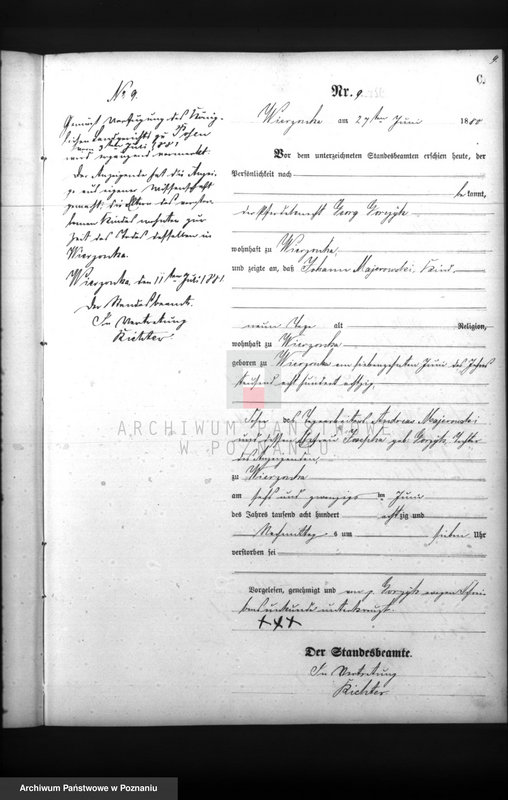 9.
C.
No 9.
Gemäß Verfügung des König-
lichen Landgerichts zu Posen
vom 9ten Juli 1881
wird ergänzend vermerkt:
Der Anzeigende hat die Anzei-
ge aus eigener Wissenschaft
gemacht; die Eltern des verstor-
benen Kindes wohnten zur
Zeit des Todes desselben in
Wierzonka.
Wierzonka, den 11ten Juli 1881.
Der Standesbeamte.
In Vertretung
Richter
Nr. 9
Wierzonka am 27ten Juni 1880
Vor dem unterzeichneten Standesbeamten erschien heute, der
Persönlichkeit nach
be kannt,
der Pferdeknecht Georg
wohnhaft zu Wierzonka,
und zeigte an, daß Johann Majerowski, Kind
neun Tage alt Religion,
wohnhaft zu Wierzonka
geboren zu Wierzonka am siebenzehnten Juni des Jahres
tausend acht hundert achtzig,
Sohn des Tagearbeiters Andreas Majerowski
und dessen Ehefrau Josepha geb. Tochter
des Anzeigenden,
zu Wierzonka
am sechs und zwanzigsten Juni
des Jahres tausend acht hundert achtzig und
Nachmittags um sieben Uhr
verstorben sei
Vorgelesen, genehmigt und von p. wegen Schrei-
bensunkunde unterkreuzt.
+++
Der Standesbeamte.
In Vertretung
Richter
ARCHIWUM PAŃSTWOWE
W POZNANIU
Archiwum Państwowe w Poznaniu